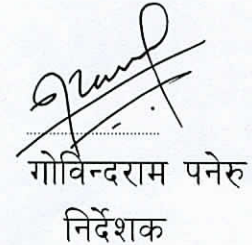 गोविन्दराम पनेरु
निर्देशक